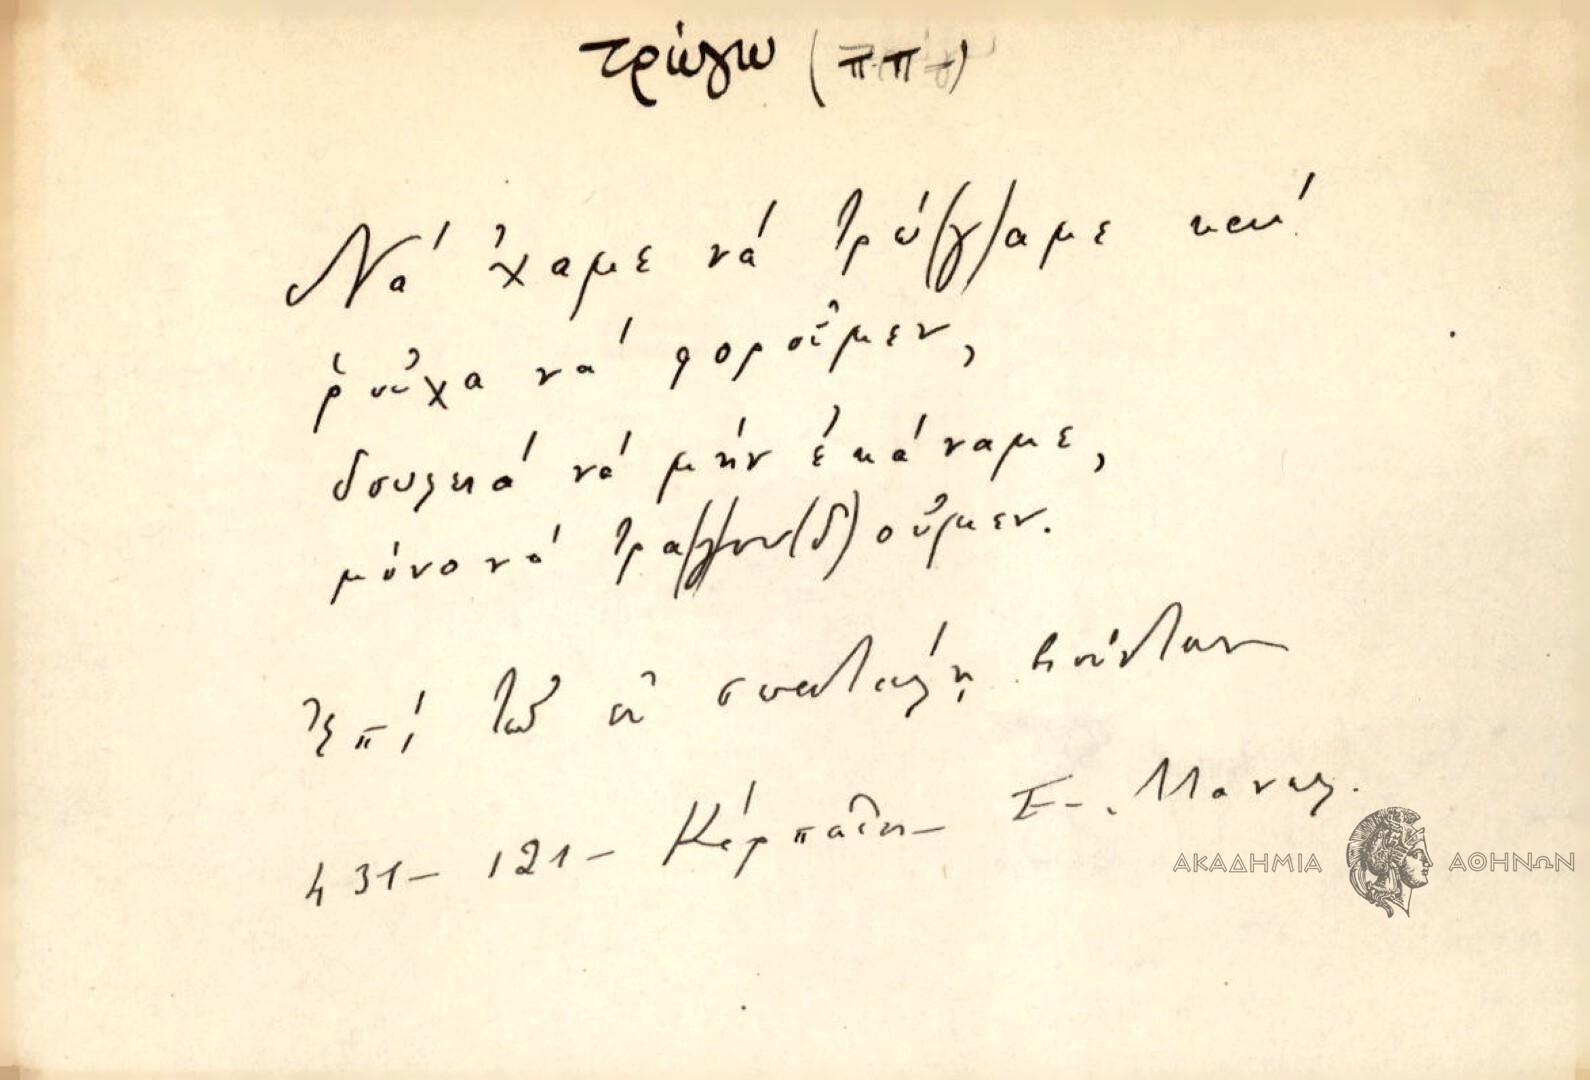 τρώγω (ππ)
Νά ̓χαμε νά τρώ(γ)αμε καί
ῥοῦχα νά φοροῦμεν,
δουλειά νά μήν ἐκάναμε,
μόνο νά τρα(γ)ου(δ)οῦμεν.
Ἐπί τῶν ἐν σπατάλῃ
431- 121- Κάρπαθος- Μ. Μανωλ.
ΑΚΑΔΗΜΙΑ ΑΘΗΝΩΝ